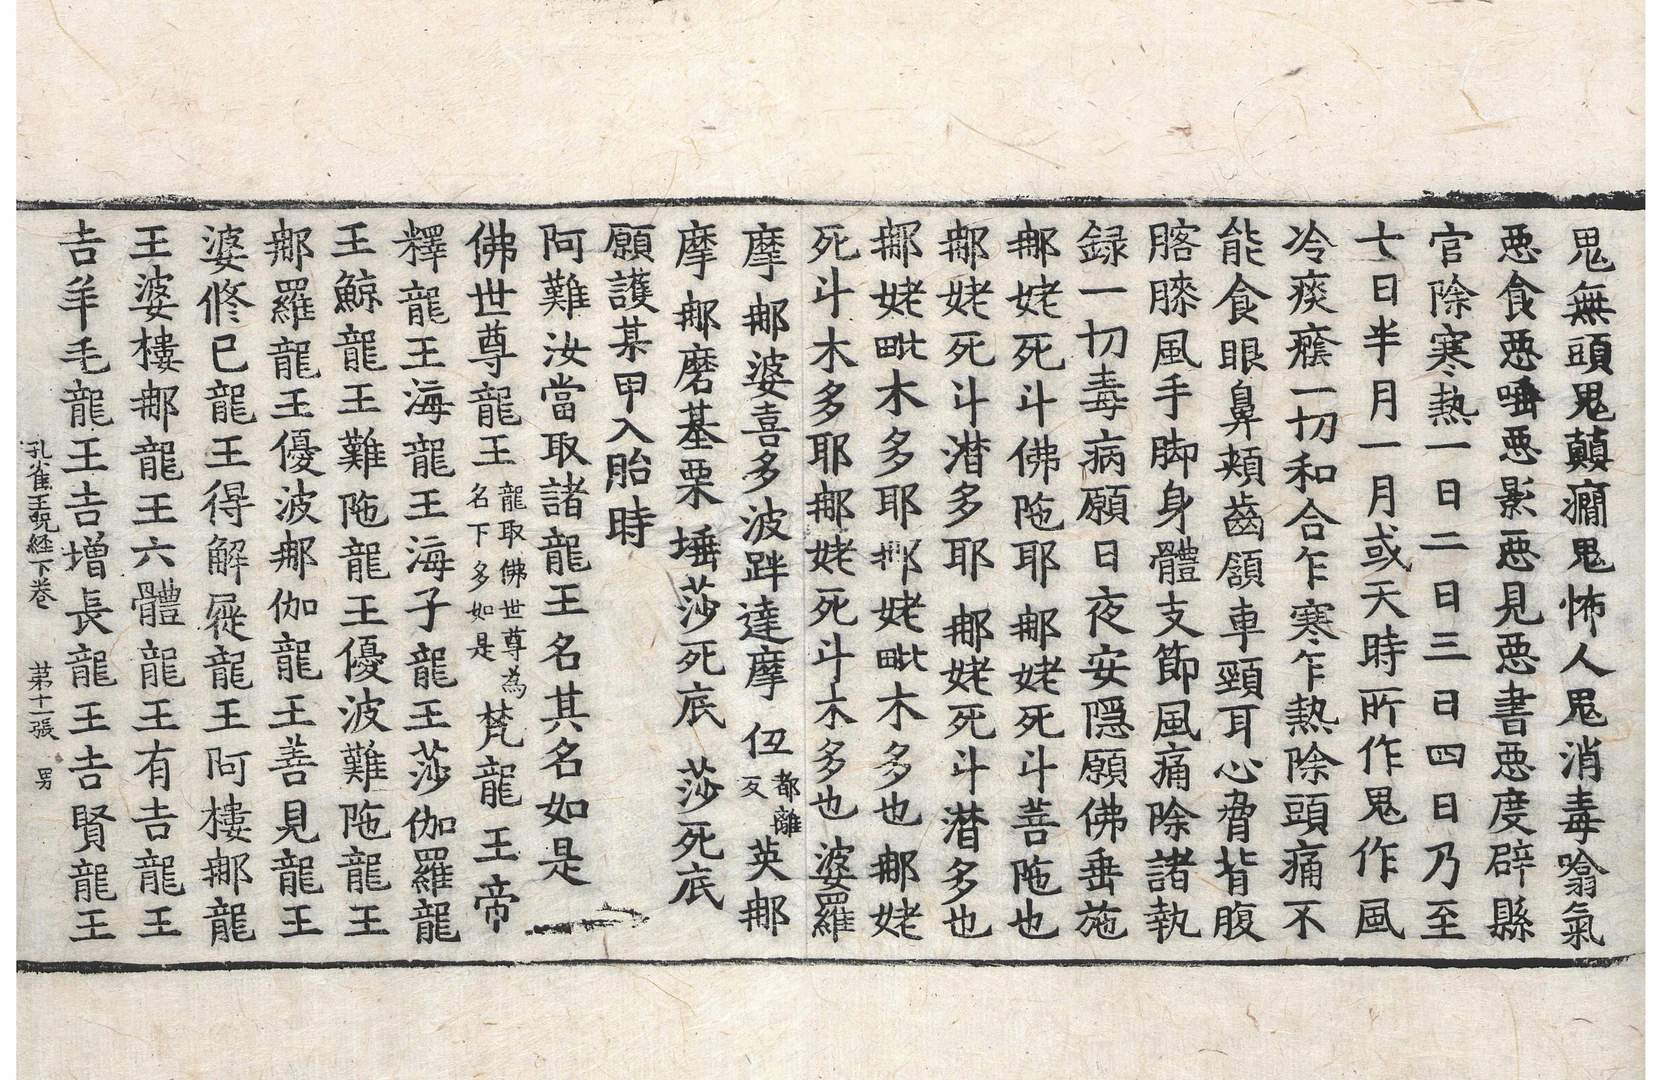 鬼無頭鬼顛癎鬼怖人鬼消毒噏氣
惡食惡唾惡影惡見惡書惡度辟縣
官除寒熱一日二日三日四日乃至
七日半月一月或天時所作鬼作風
冷痰癊一切和合乍寒乍熱除頭痛不
能食眼鼻頰齒頷車頸耳心脅背腹
䏶膝風手脚身體支節風痛除諸執
録一切毒病願日夜安隱願佛垂施
郍姥死斗佛陁耶 郍姥死斗菩陁也
郍姥死斗潜多耶 郍姥死斗潜多也
郍姥毗木多耶 郍姥毗木多也 郍姥
死斗木多耶郍姥死斗木多也 婆羅
摩 郍婆喜多波跘達摩 伹都離反 英郍
摩 郍磨基栗 埵莎死底 莎死底
願護某甲入胎時
阿難汝當取諸龍王名其名如是
佛世尊龍王 龍取佛世尊為名下多如是 梵龍王帝
釋龍王海龍王海子龍王莎伽羅龍
王鯨龍王難陁龍王優波難陁龍王
郍羅龍王優波郍伽龍王善見龍王
婆修已龍王得解屣龍王阿樓郍龍
王婆樓郍龍王六體龍王有吉龍王
吉羊毛龍王吉增長龍王吉賢龍王
孔雀王呪経下卷 第十一張 男